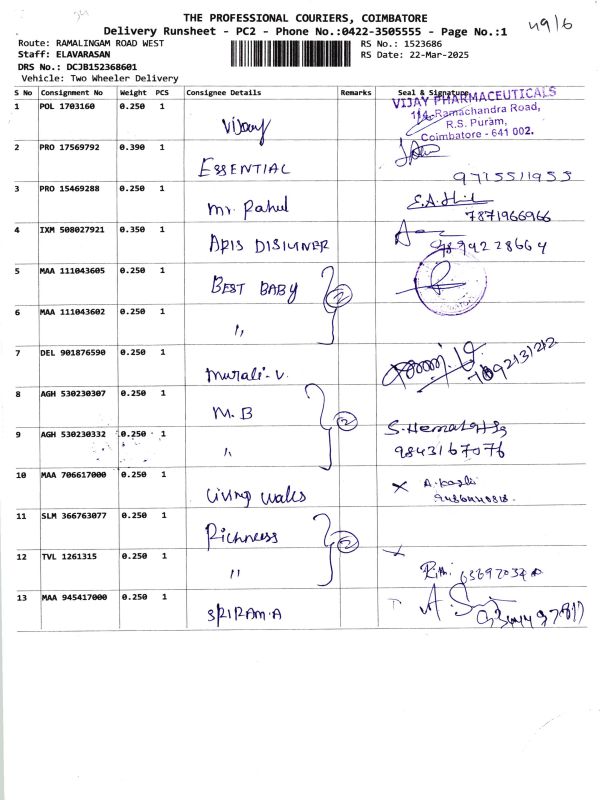 THE PROFESSIONAL COURIERS, COIMBATORE
49/6
Delivery Runsheet - PC2 - Phone No.:0422-3505555 - Page No.:1
Route: RAMALINGAM ROAD WEST RS No.: 1523686
Staff: ELAVARASAN RS Date: 22-Mar-2025
DRS No.: DCJB152368601
Vehicle: Two Wheeler Delivery
S No Consignment No Weight PCS Consignee Details Remarks Seal & Signature
1 POL 1703160 0.250 1 Vijay
VIJAY PHARMACEUTICALS
114, Ramachandra Road,
R.S. Puram,
Coimbatore - 641 002.
2 PRO 17569792 0.390 1 ESSENTIAL
9715511955
3 PRO 15469288 0.250 1 Mr. Rahul
7871966966
4 IXM 508027921 0.350 1 ARIS DISIUNER
9894228664
5 MAA 111043605 0.250 1 BEST BABY 2
6 MAA 111043602 0.250 1 "
7 DEL 901876590 0.250 1 Murali-V.
7892131212
8 AGH 530230307 0.250 1 M.B 2
9 AGH 530230332 0.250 1 "
9843167076
10 MAA 706617000 0.250 1 Living walls
11 SLM 366763077 0.250 1 Richness 2
12 TVL 1261315 0.250 1 "
13 MAA 945417000 0.250 1 SRIRAM.A